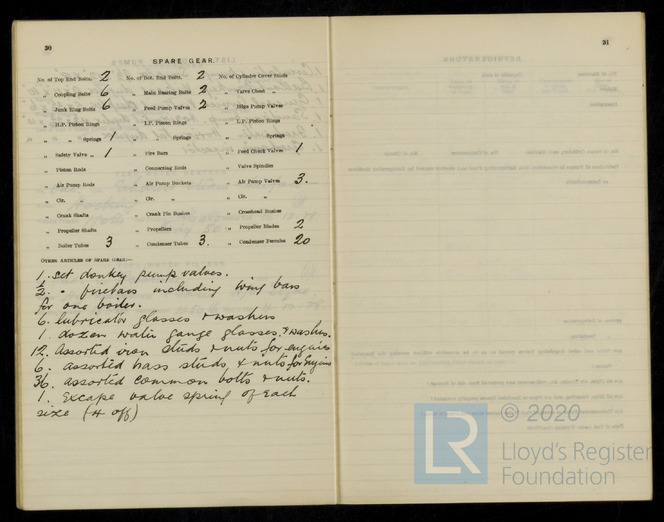 30
SPARE GEAR.
No. of Top End Bolts, 2 No. of Bot. End Bolts, 2 No. of Cylinder Cover Studs
„ Coupling Bolts 6 „ Main Bearing Bolts 2 „ Valve Chest „
„ Junk Ring Bolts 6 „ Feed Pump Valves 2 „ Bilge Pump Valves
„ H.P. Piston Rings „ I.P. Piston Rings „ L.P. Piston Rings
„ „ Springs 1 „ „ Springs „ „ Springs
„ Safety Valve „ 1 „ Fire Bars „ Feed Check Valves 1
„ Piston Rods „ Connecting Rods „ Valve Spindles
„ Air Pump Rods „ Air Pump Buckets „ Air Pump Valves 3.
„ Cir. „ „ Cir. „ „ Cir. „
„ Crank Shafts „ Crank Pin Bushes „ Crosshead Bushes
„ Propeller Shafts „ Propellers „ Propeller Blades 2
„ Boiler Tubes 3 „ Condenser Tubes 3. „ Condenser Ferrules 20
OTHER ARTICLES OF SPARE GEAR:—
1. set donkey pump valves.
1/2. " firebars including wing bars
for one boiler.
6. lubricator glasses & washers
1. dozen water gauge glasses & washers.
12. Assorted iron studs & nuts for engines
6. assorted brass studs, & nuts for Engines
36. assorted common bolts & nuts.
1. Escape valve spring of each
size (4 off)
31
© 2020
LR
Lloyd's Register
Foundation